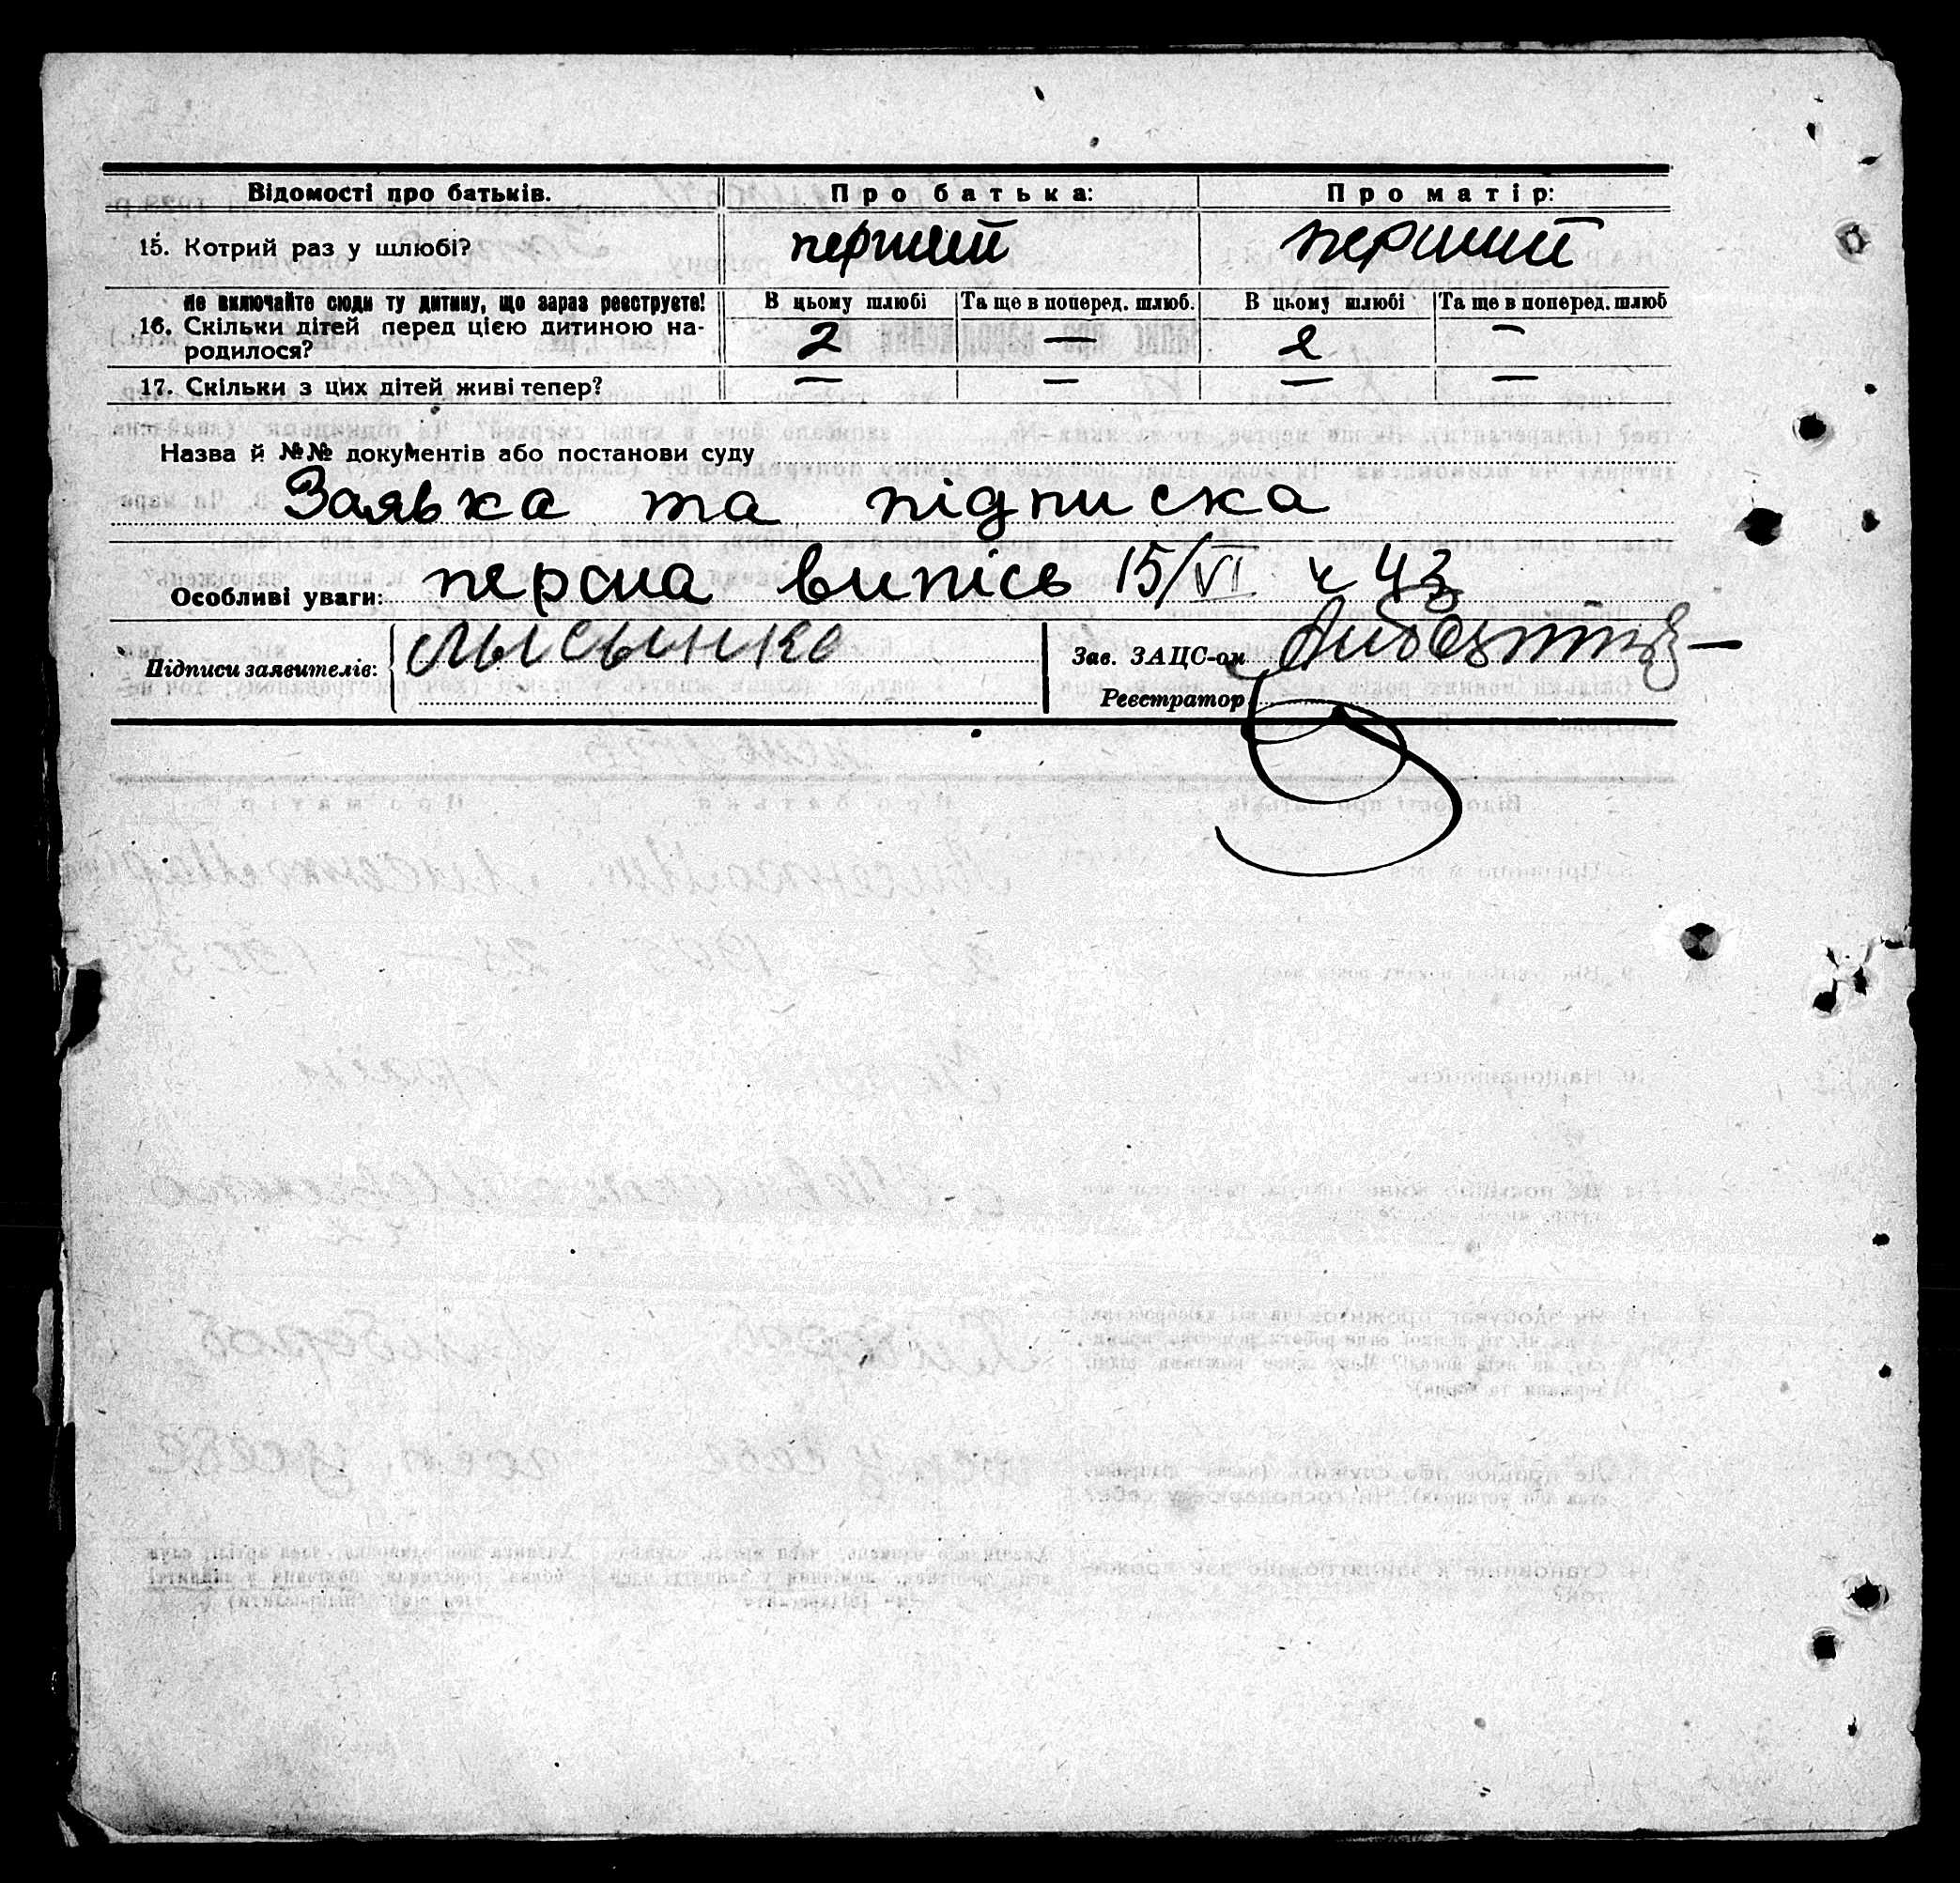 Відомості про батьків. Про батька: Про матір:
15. Котрий раз у шлюбі? перший перший
Не включайте сюди ту дитину, що зараз реєструєте! В цьому шлюбі Та ще в поперед. шлюб. В цьому шлюбі Та ще в поперед. шлюб
16. Скільки дітей перед цією дитиною на- 2 — 2 —
родилося?
17. Скільки з цих дітей живі тепер? — — — —
Назва й №№ документів або постанови суду
Заявка та підписка
Особливі уваги: перша випісь 15/VI ч 43
Підписи заявителів: Лысынко Зав. ЗАЦС-ом
Реєстратор